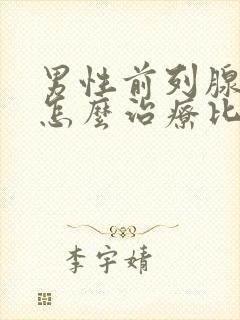 男性前列腺
怎麼治療比
李宇婧